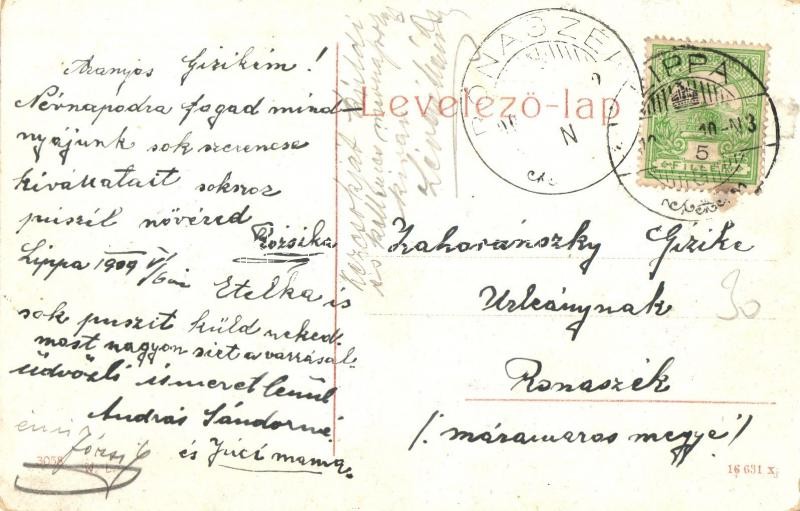 Aranyos Gizikém!
Névnapodra fogad mind-
nyájunk sok szerencse
kivánatait sokszor
puszil nővéred
Rózsika
Lippa 1909 V/6án
Etelka is
sok puszit küld neked.
most nagyon siet a varrásal.
üdvözli ismeretlenül
András Sándorné
és Juci mama.
Józsi
3058
Levelező-lap
Kézcsókját küldi
és kellemes névnapot
kiván
RÓNASZÉK
N
LIPPA
10-N3
5
FILLÉR
Zahoránszky Gizike
Urleánynak
Ronaszék
(: máramaros megye :)
30
16 631 x